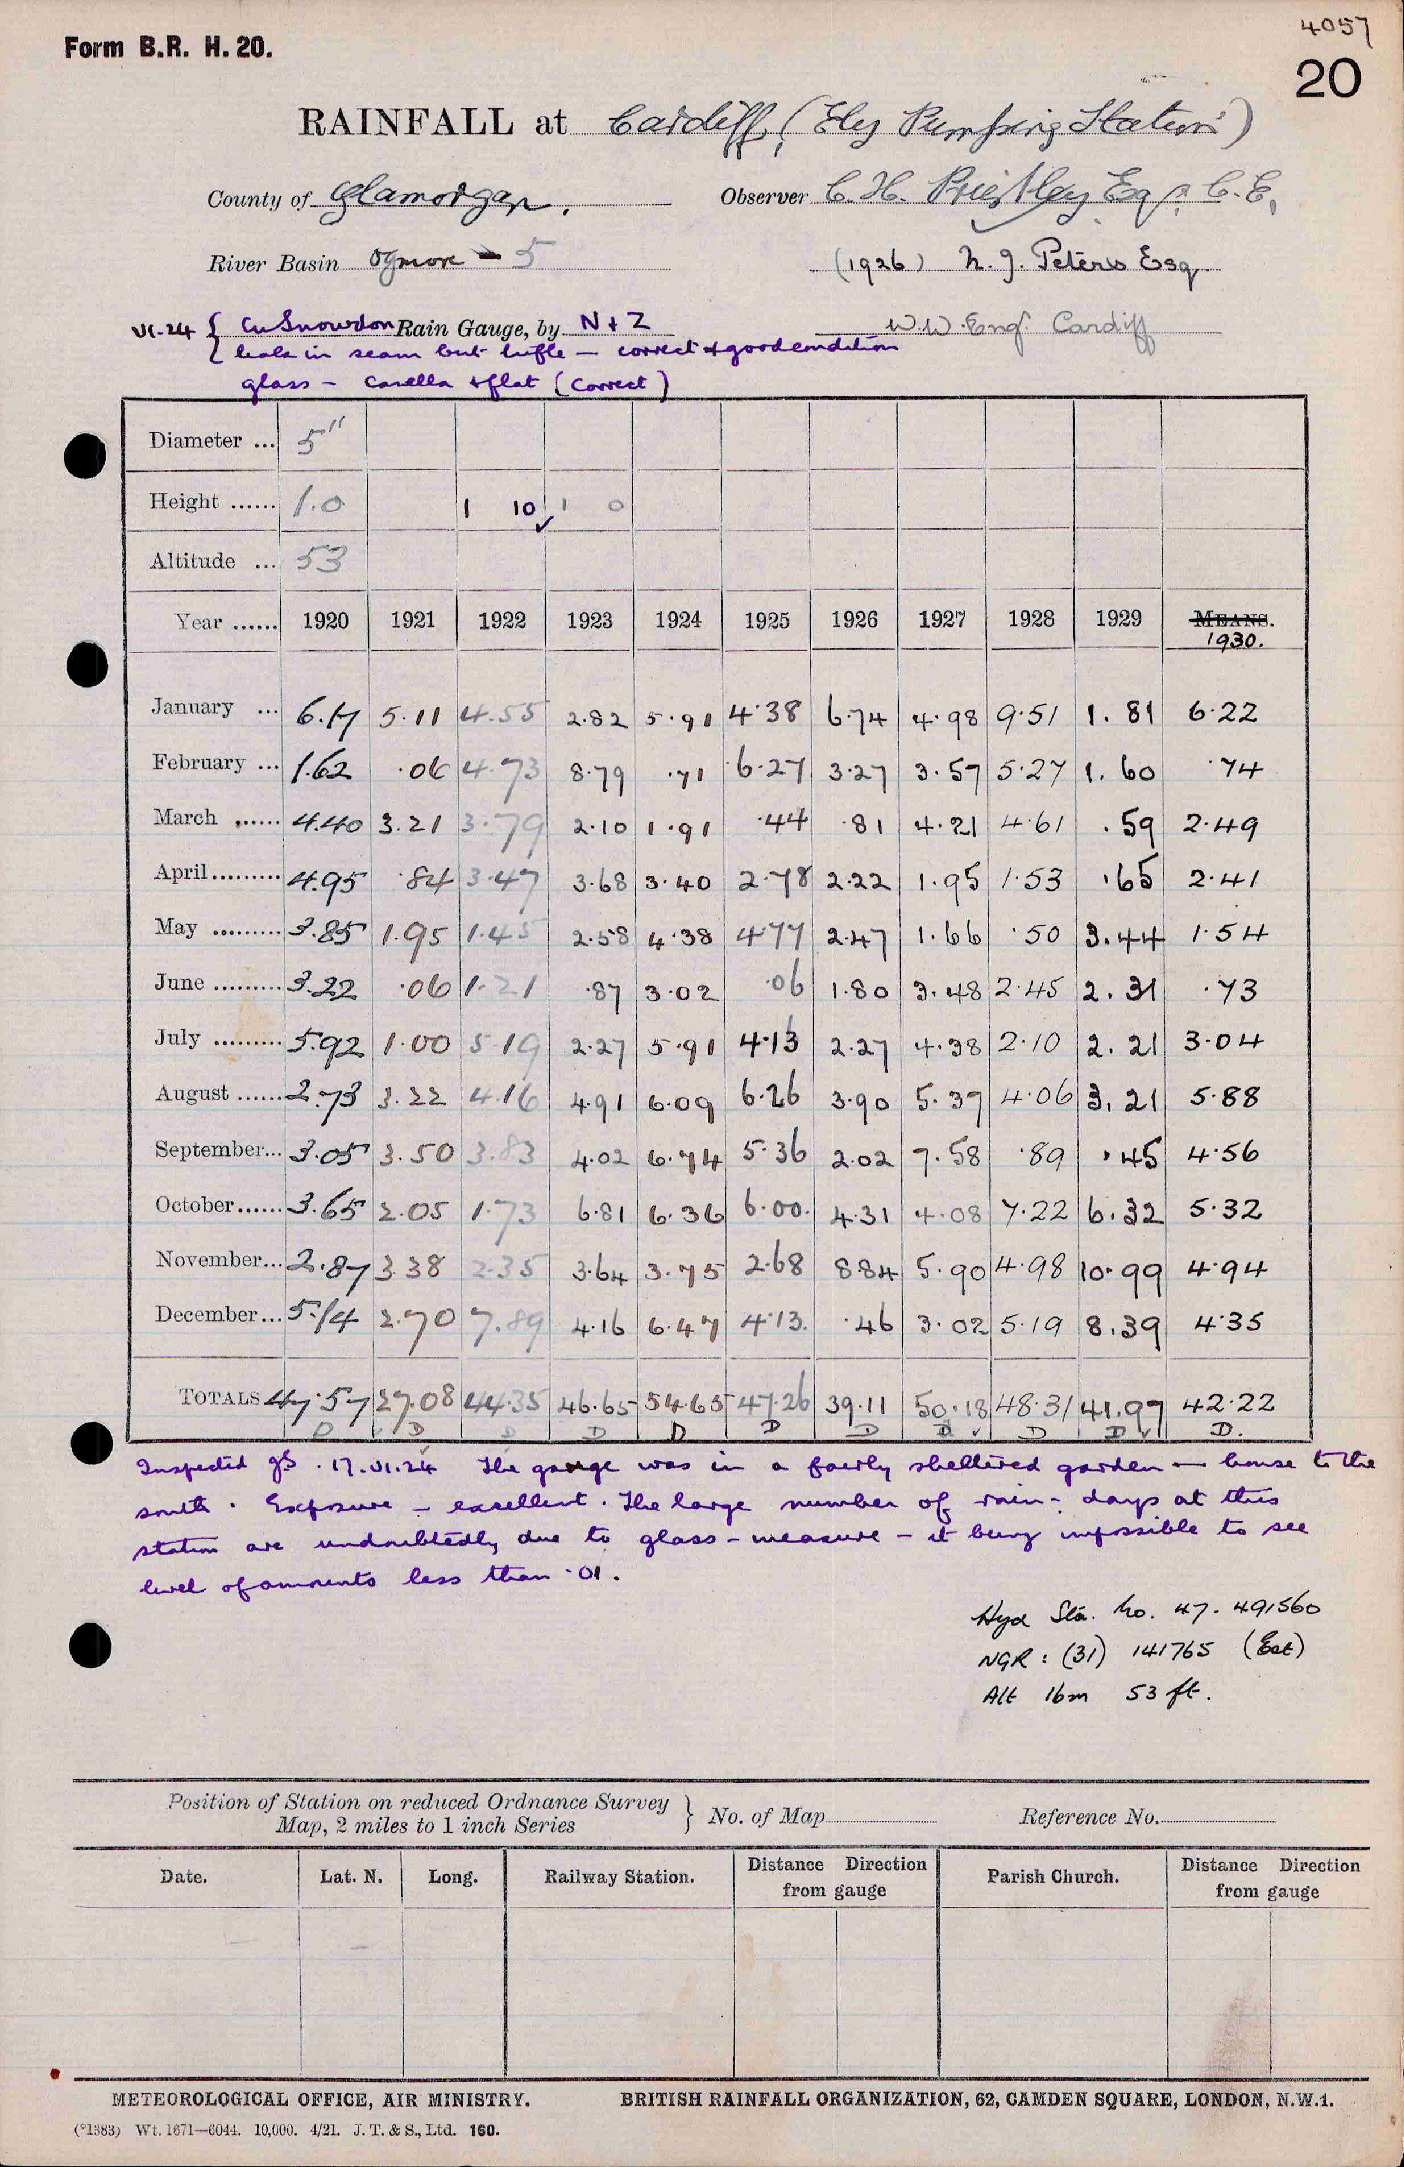 4057
Form B.R. H. 20.
20
RAINFALL at Cardiff, (Ely Pumping Station)
County of Glamorgan. Observer C. H. Priestley Esq. C.E.
River Basin Ogmore - 5 (1926) N. J. Peters Esq
VI.24 { Cu Snowdon Rain Gauge, by N + Z W.W. Engr. Cardiff
leak in seam but trifle - correct & good condition
glass - Casella & flat (correct)
Diameter ... 5"
Height ...... 1.0 1 10 ✓ 1 0
Altitude ... 53
Year ...... 1920 1921 1922 1923 1924 1925 1926 1927 1928 1929 MEANS.
1930.
January ... 6.17 5.11 4.55 2.82 5.91 4.38 6.74 4.98 9.51 1.81 6.22
February ... 1.62 .06 4.73 8.79 .71 6.27 3.27 3.57 5.27 1.60 .74
March ...... 4.40 3.21 3.79 2.10 1.91 .44 .81 4.21 4.61 .59 2.49
April ......... 4.95 .84 3.47 3.68 3.40 2.78 2.22 1.95 1.53 .65 2.41
May ......... 3.85 1.95 1.45 2.58 4.38 4.77 2.47 1.66 .50 3.44 1.54
June ......... 3.22 .06 1.21 .87 3.02 .06 1.80 3.48 2.45 2.31 .73
July ......... 5.92 1.00 5.19 2.27 5.91 4.13 2.27 4.38 2.10 2.21 3.04
August ...... 2.73 3.22 4.16 4.91 6.09 6.26 3.90 5.37 4.06 3.21 5.88
September... 3.05 3.50 3.83 4.02 6.74 5.36 2.02 7.58 .89 .45 4.56
October...... 3.65 2.05 1.73 6.81 6.36 6.00 4.31 4.08 7.22 6.32 5.32
November... 2.87 3.38 2.35 3.64 3.75 2.68 8.84 5.90 4.98 10.99 4.94
December... 5.14 2.70 7.89 4.16 6.47 4.13 .46 3.02 5.19 8.39 4.35
TOTALS 47.57 27.08 44.35 46.65 54.65 47.26 39.11 50.18 48.31 41.97 42.22
D D D D D D D D D D D.
Inspected JS. 17.VI.24 The gauge was in a fairly sheltered garden - house to the
south. Exposure - excellent. The large number of rain-days at this
station are undoubtedly due to glass-measure - it being impossible to see
level of amounts less than .01.
Hyd Sta. No. 47. 491560
NGR: (31) 141765 (Est)
Alt 16m 53 ft.
Position of Station on reduced Ordnance Survey
Map, 2 miles to 1 inch Series } No. of Map Reference No.
Date. Lat. N. Long. Railway Station. Distance Direction from gauge Parish Church. Distance Direction from gauge
METEOROLOGICAL OFFICE, AIR MINISTRY. BRITISH RAINFALL ORGANIZATION, 62, CAMDEN SQUARE, LONDON, N.W.1.
(*1383) Wt. 1671—6044. 10,000. 4/21. J. T. & S., Ltd. 160.